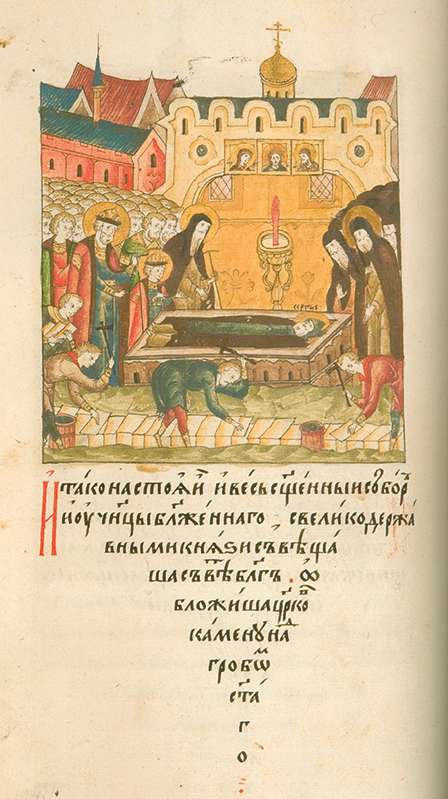 И тако настоѧй и весь сщ҃енныи соборⷬ
и оучн҃цы бл҃женнаго с великодержа
вными кнѧѕи съвѣща
ша съвѣⷮ бл҃гъ . ѡ
бложиша цр҃коⷡ
каменꙋ наⷣ
гробѡⷨ
ст҃а
г
о